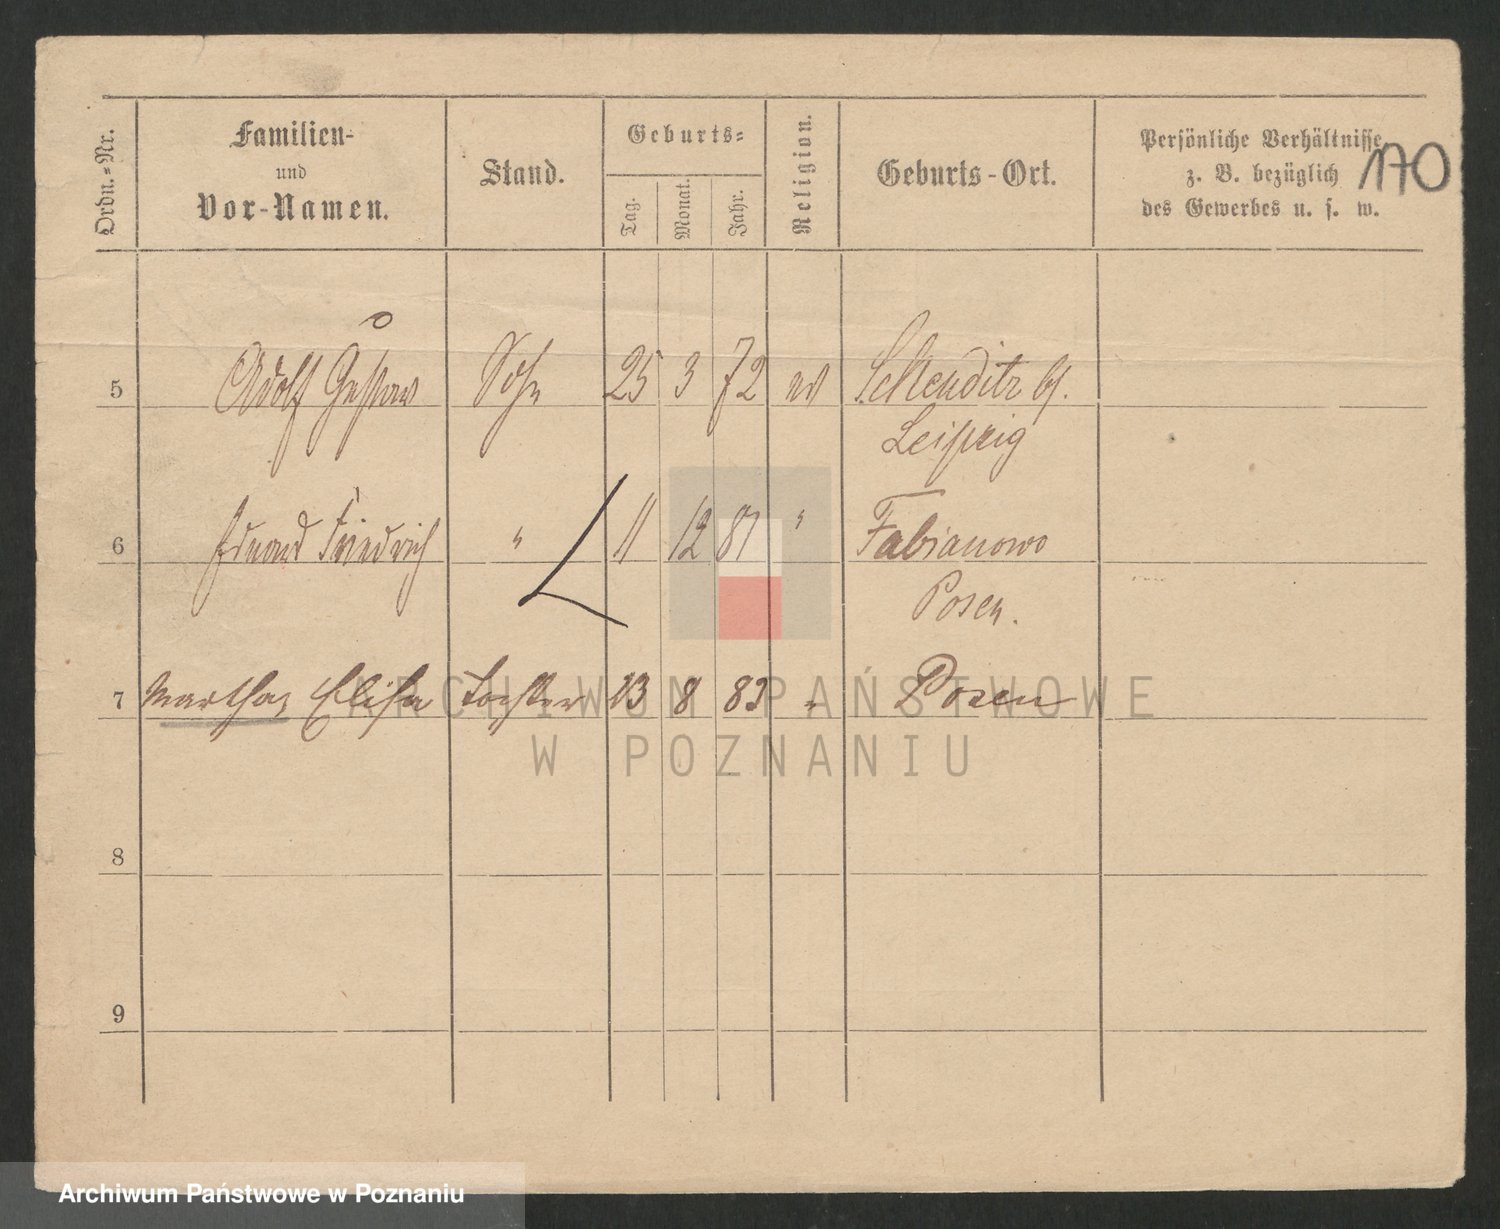 Ordn.=Nr.
Familien-
und
Vor-Namen.
Stand.
Geburts=
Tag.
Monat.
Jahr.
Religion.
Geburts-Ort.
Persönliche Verhältnisse
z. B. bezüglich
des Gewerbes u. s. w.
170
5 Adolf Gustav Sohn 25 3 72 Schkeuditz b/.
Leipzig
6 Eduard Friedrich " 11 12 81 " Fabianowo
Posen.
7 Martha, Elisa Tochter 13 8 83 " Posen
8
9
ARCHIWUM PAŃSTWOWE
W POZNANIU
Archiwum Państwowe w Poznaniu